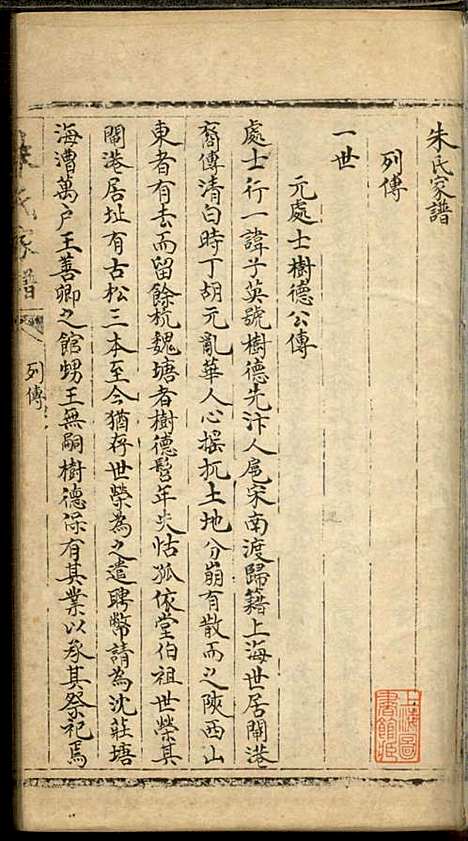 朱氏家譜
列傳
一世
元處士樹德公傳
處士行一諱子英號樹德先汴人扈宋南渡歸籍上海世居閘港
裔傳清白時丁胡元亂華人心搖扤土地分崩有散而之陝西山
東者有去而留餘杭魏塘者樹德髫年失怙孤依堂伯祖世榮其
閘港居址有古松三本至今猶存世榮為之遣聘幣請為沈莊塘
海漕萬户王善卿之館甥王無嗣樹德保有其業以承其祭祀焉
朱氏家譜
列傳
上海圖書館藏